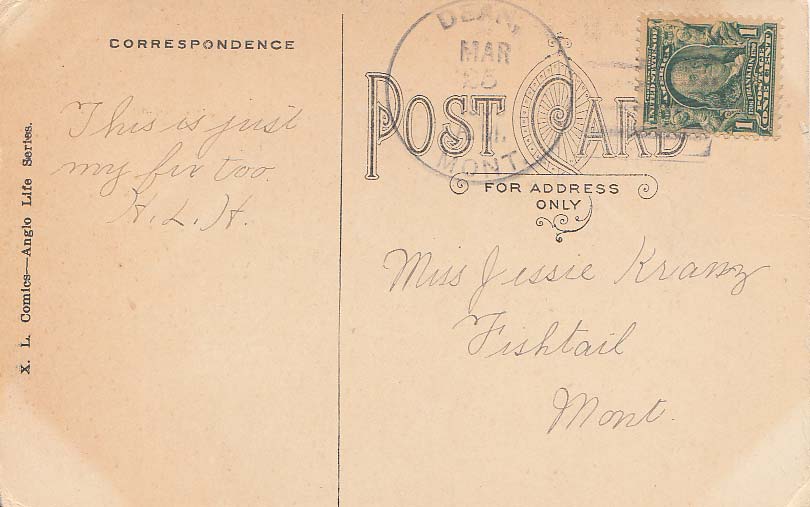 CORRESPONDENCE
This is just
my
too.
H. L. H.
X. L. Comics—Anglo Life Series.
DEAN,
MAR
25
A.M.
MONT.
UNITED STATES OF AMERICA
1 POSTAGE 1
ONE CENT
POST CARD
FOR ADDRESS
ONLY
Miss Jessie Kranz
Fishtail
Mont.